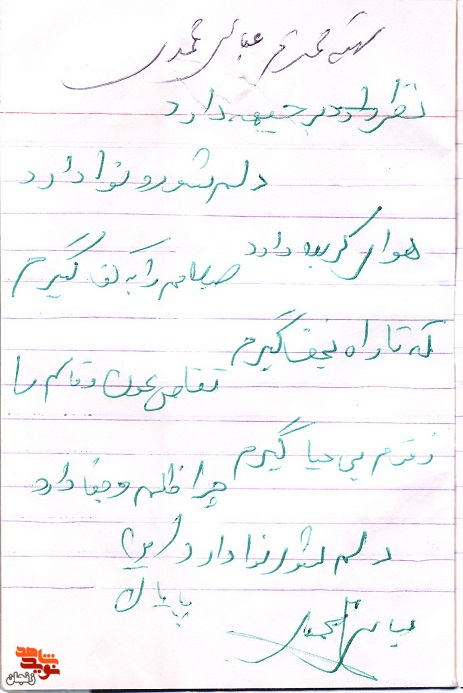 شهید محترم عباس محمدی
نظر دارد بر جبهه دارد
دلم شور و نوا دارد
هوای کربلا دارد
سلاحم را به کف گیرم
که تا راه نجف گیرم
تقاص عون و قاسم را
ز قوم بی حیا گیرم
چرا ظلم و جفا دارد
دلم شور نوا دارد
پایان
عباس محمدی
نوید شاهد
زنجان